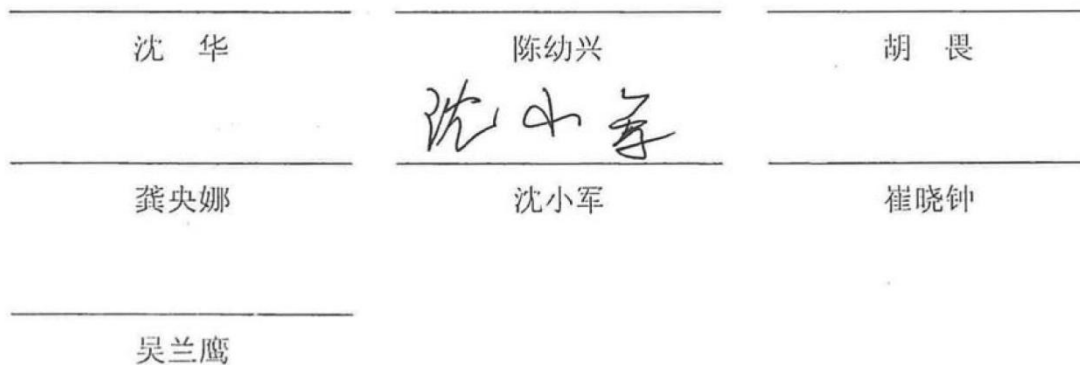 沈 华 陈幼兴 胡 畏
沈小军
龚央娜 沈小军 崔晓钟
吴兰鹰